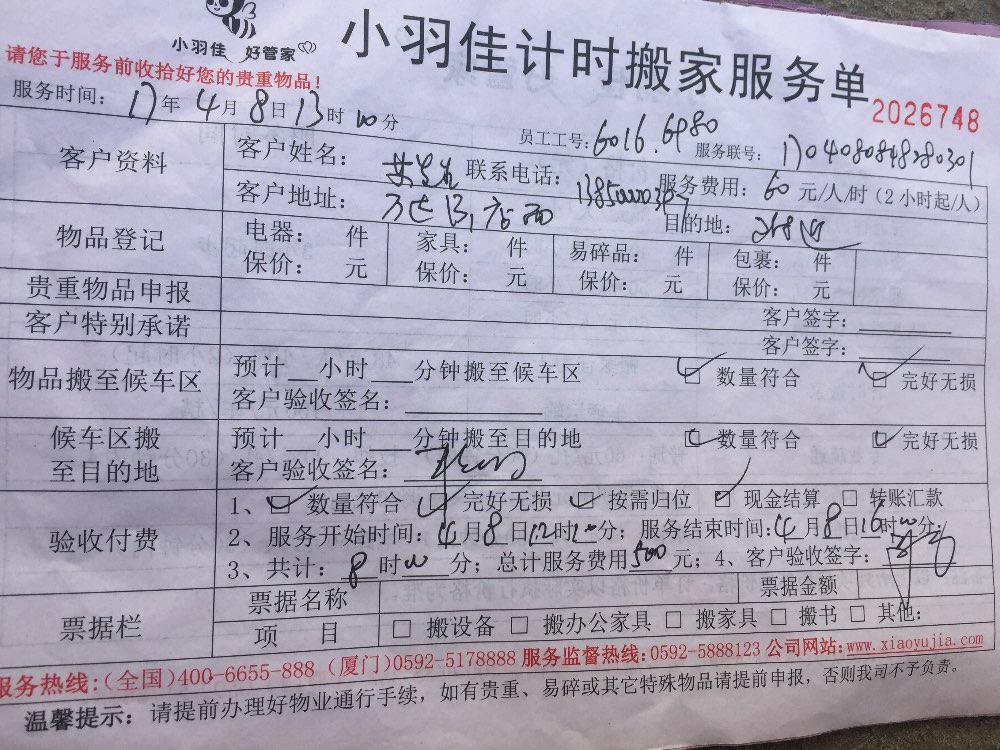 小羽佳 好管家
小羽佳计时搬家服务单
2026748
请您于服务前收拾好您的贵重物品！
服务时间：17年4月8日13时00分
员工工号：6016.6980
服务联号：
客户资料
客户姓名：
联系电话：
服务费用：60元/人/时（2小时起/人）
客户地址：
目的地：
物品登记
电器： 件 家具： 件 易碎品： 件 包裹： 件
保价： 元 保价： 元 保价： 元 保价： 元
贵重物品申报
客户签字：
客户特别承诺
客户签字：
物品搬至候车区
预计 小时 分钟搬至候车区 数量符合 完好无损
客户验收签名：
候车区搬至目的地
预计 小时 分钟搬至目的地 数量符合 完好无损
客户验收签名：
验收付费
1、数量符合 完好无损 按需归位 现金结算 转账汇款
2、服务开始时间：4月8日12时 分；服务结束时间：4月8日16时 分；
3、共计：8时00分；总计服务费用500元；4、客户验收签字：
票据栏
票据名称 票据金额
项 目 搬设备 搬办公家具 搬家具 搬书 其他：
服务热线：(全国)400-6655-888 (厦门)0592-5178888 服务监督热线：0592-5888123 公司网站：www.xiaoyujia.com
温馨提示：请提前办理好物业通行手续，如有贵重、易碎或其它特殊物品请提前申报，否则我司不予负责。